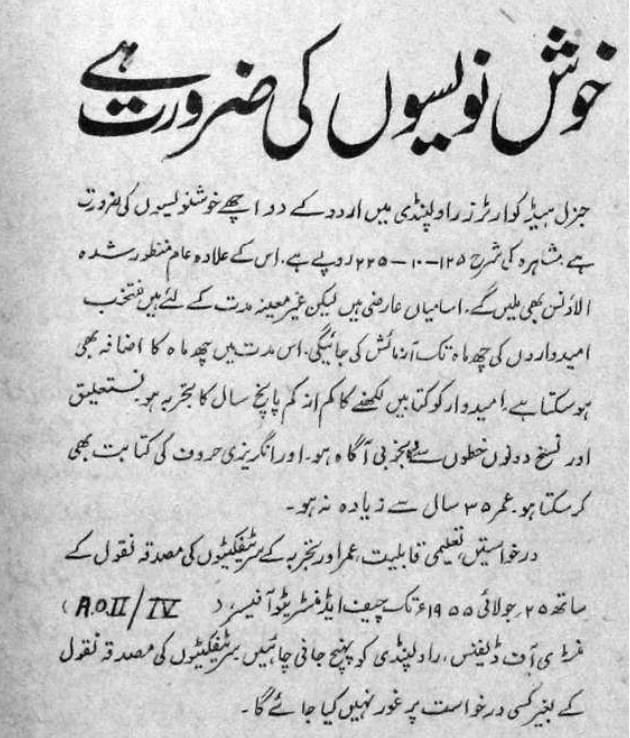 خوش نویسوں کی ضرورت ہے
جنرل ہیڈ کوارٹرز راولپنڈی میں اردو کے دو اچھے خوشنویسوں کی ضرورت
ہے۔ مشاہرہ کی شرح ۱۲۵-۱۰-۲۲۵ روپے ہے۔ اس کے علاوہ عام منظور شدہ
الاؤنس بھی ملیں گے۔ اسامیاں عارضی ہیں لیکن غیر معینہ مدت کے لئے ہیں منتخب
امیدواروں کی چھ ماہ تک آزمائش کی جائیگی۔ اس مدت میں چھ ماہ کا اضافہ بھی
ہوسکتا ہے۔ امیدوار کو کتابیں لکھنے کا کم از کم پانچ سال کا تجربہ ہو۔ نستعلیق
اور نسخ دونوں خطوں سے بخوبی آگاہ ہو۔ اور انگریزی حروف کی کتابت بھی
کرسکتا ہو۔ عمر ۳۵ سال سے زیادہ نہ ہو۔
درخواستیں، تعلیمی قابلیت، عمر اور تجربہ کے سرٹفکیٹوں کی مصدقہ نقول کے
ساتھ ۲۵ جولائی ۱۹۵۵ء تک چیف ایڈمنسٹریٹو آفیسر، (A.O.II/IV)
منسٹری آف ڈیفنس، راولپنڈی کو پہنچ جانی چاہئیں۔ سرٹیفکیٹوں کی مصدقہ نقول
کے بغیر کسی درخواست پر غور نہیں کیا جائے گا۔